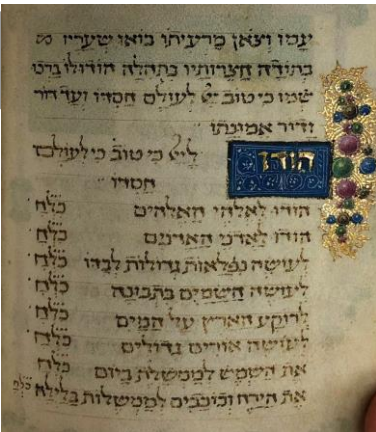 עמו וצאן מרעיתו בואו שעריו
בתודה חצרותיו בתהלה הודו לו ברכו
שמו כי טוב ייי לעולם חסדו ועד דור
ודור אמונתו
הודו ליי כי טוב כי לעולם
חסדו
הודו לאלהי האלהים כלח
הודו לאדני האדנים כלח
לעושה נפלאות גדולות לבדו כלח
לעושה השמים בתבונה כלח
לרוקע הארץ על המים כלח
לעושה אורים גדולים כלח
את השמש לממשלת ביום כלח
את הירח וכוכבים לממשלות בלילה כלח